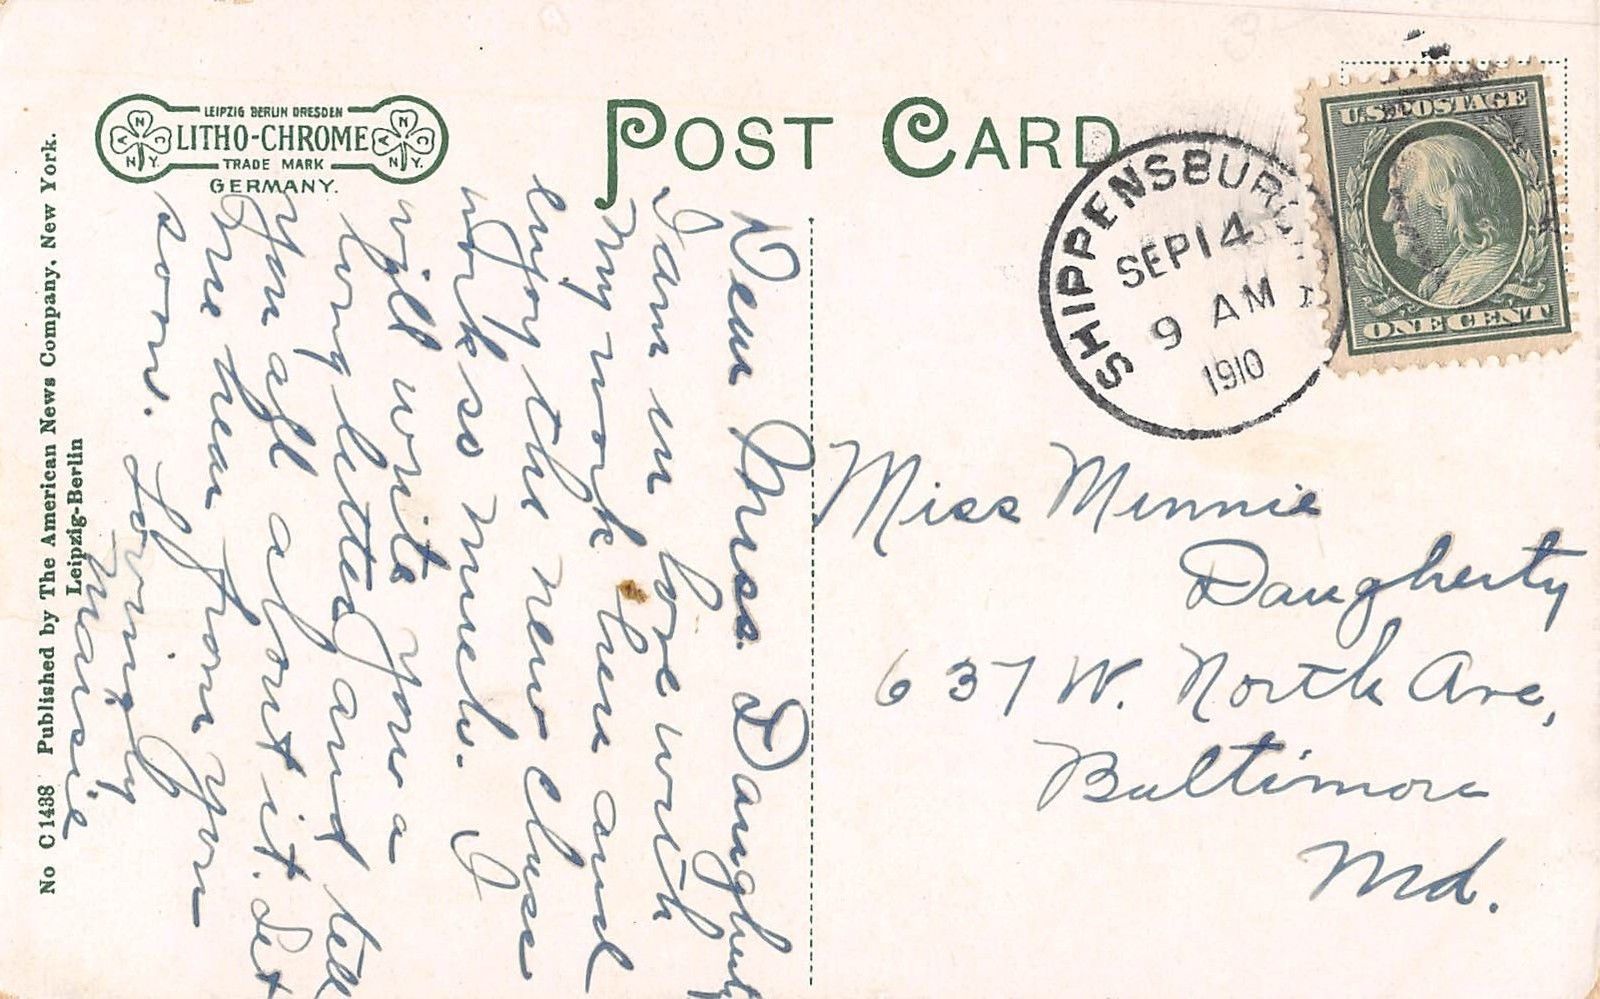 LEIPZIG BERLIN DRESDEN
LITHO-CHROME
TRADE MARK
GERMANY.
A N C
N.Y.
A N C
N.Y.
POST CARD
SHIPPENSBURG
SEP 14
9 AM
1910
U.S. POSTAGE
ONE CENT
No C 1438 Published by The American News Company, New York.
Leipzig-Berlin
Dear Miss Daugherty
I am in love with
my work here and
enjoy the new class
work so much. I
will write you a
long letter and tell
you all about it. Let
me hear from you
soon. Lovingly
Marsie
Miss Minnie
Daugherty
637 W. North Ave,
Baltimore
Md.